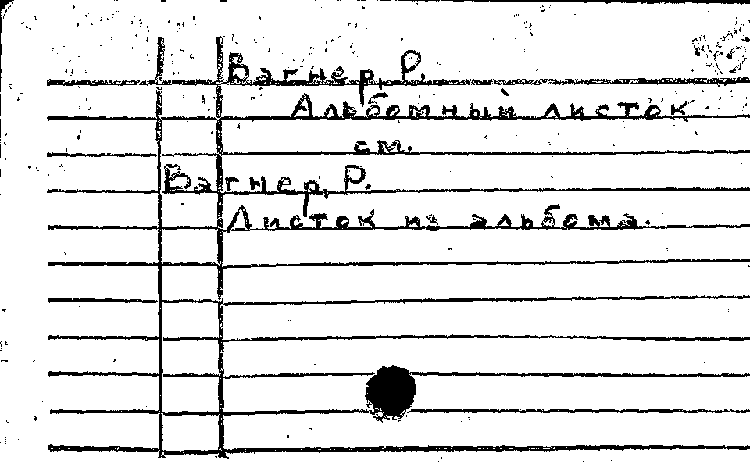 Вагнер, Р.
Альбомный листок
см.
Вагнер, Р.
Листок из альбома.